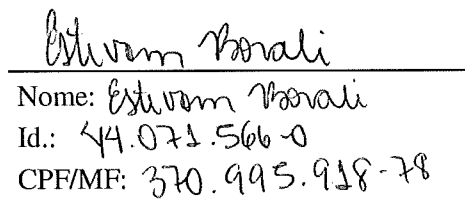 Estevam Borali
Nome: Estevam Borali
Id.: 44.071.566-0
CPF/MF: 370.995.918-78